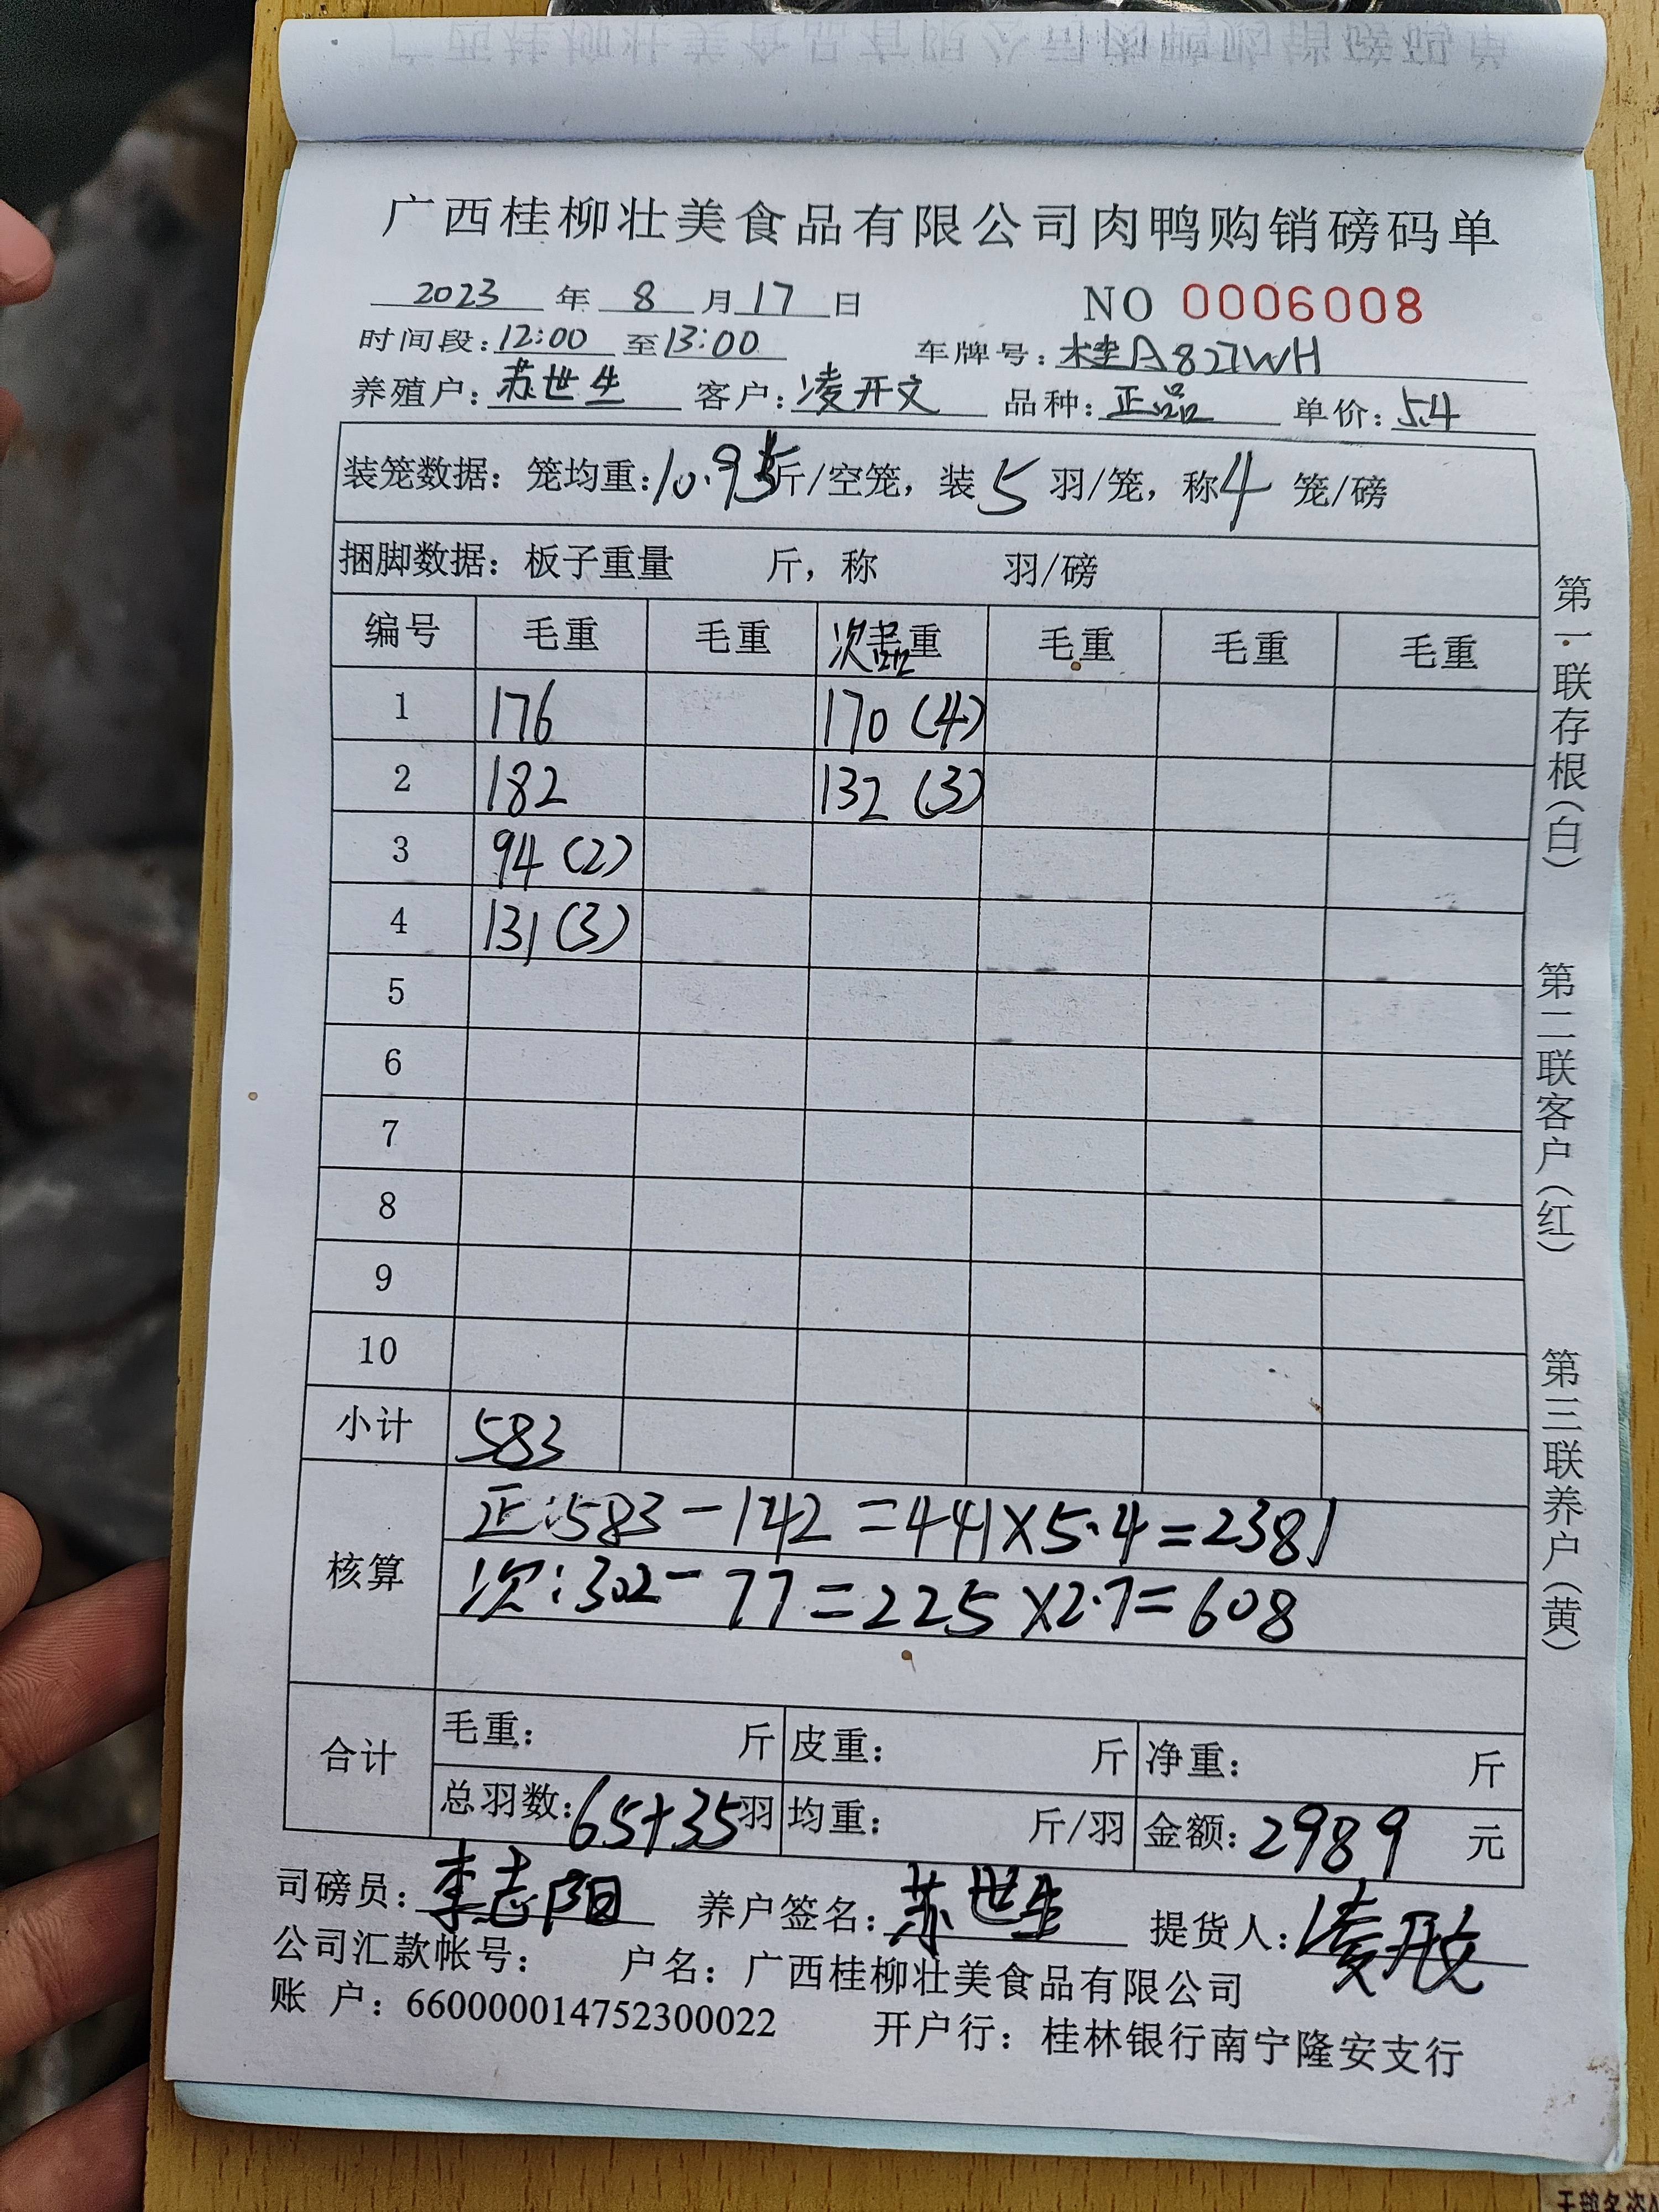 广西桂柳壮美食品有限公司肉鸭购销磅码单
2023 年 8 月 17 日 NO 0006008
时间段:12:00 至13:00 车牌号:桂A827WH
养殖户:苏世生 客户:凌开文 品种:正品 单价:5.4
装笼数据：笼均重:10.95斤/空笼，装 5 羽/笼，称4 笼/磅
捆脚数据：板子重量 斤，称 羽/磅
编号 毛重 毛重 次品重 毛重 毛重 毛重
1 176 170 (4)
2 182 132 (3)
3 94 (2)
4 131 (3)
5
6
7
8
9
10
小计 583
核算 正:583-142=441×5.4=2381
次:302-77=225×2.7=608
合计 毛重： 斤 皮重： 斤 净重： 斤
总羽数:65+35羽 均重： 斤/羽 金额:2989 元
司磅员:李志阳 养户签名:苏世生 提货人:凌开文
公司汇款帐号： 户名：广西桂柳壮美食品有限公司
账 户：660000014752300022 开户行：桂林银行南宁隆安支行
第一联存根(白)
第二联客户(红)
第三联养户(黄)